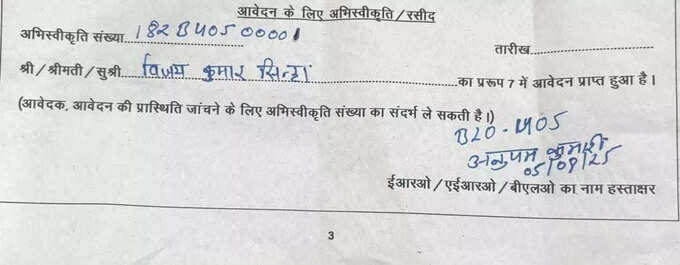 आवेदन के लिए अभिस्वीकृति/रसीद
अभिस्वीकृति संख्या 182B40500001 तारीख
श्री/श्रीमती/सुश्री विजय कुमार सिन्हा का प्ररूप 7 में आवेदन प्राप्त हुआ है।
(आवेदक, आवेदन की प्रास्थिति जांचने के लिए अभिस्वीकृति संख्या का संदर्भ ले सकती है।)
BLO-405
अनुपम कुमारी
05/09/25
ईआरओ/एईआरओ/बीएलओ का नाम हस्ताक्षर
3